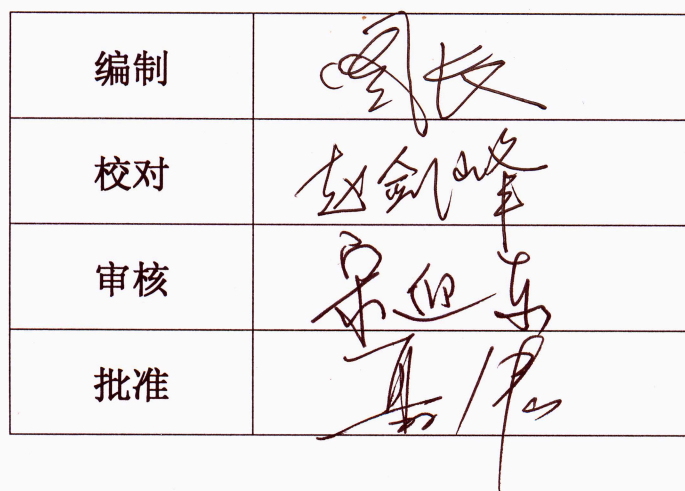 编制
校对 赵剑峰
审核 宋迎东
批准